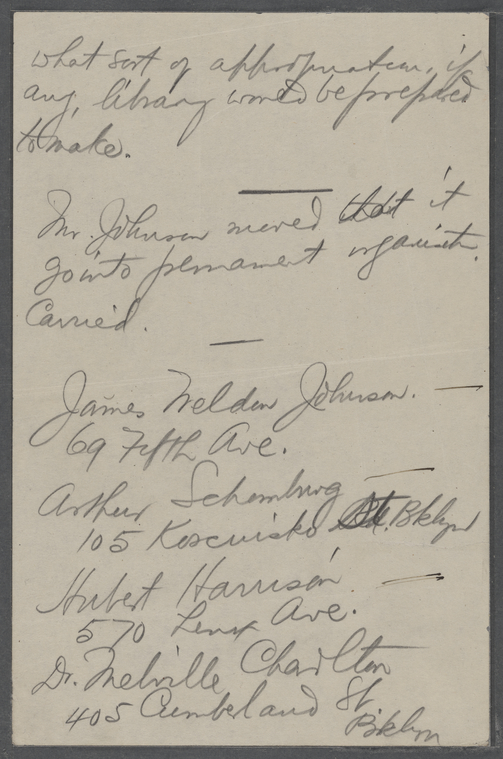 what sort of appropriation, if
any, library would be prepared
to make.
Mr. Johnson moved that it
go into permanent organizatn.
Carried.
James Weldon Johnson.
69 Fifth Ave.
Arthur Schomburg
105 Kosciusko St. Bklyn
Hubert Harrison
570 Lenox Ave.
Dr. Melville Charlton
405 Cumberland St
Bklyn